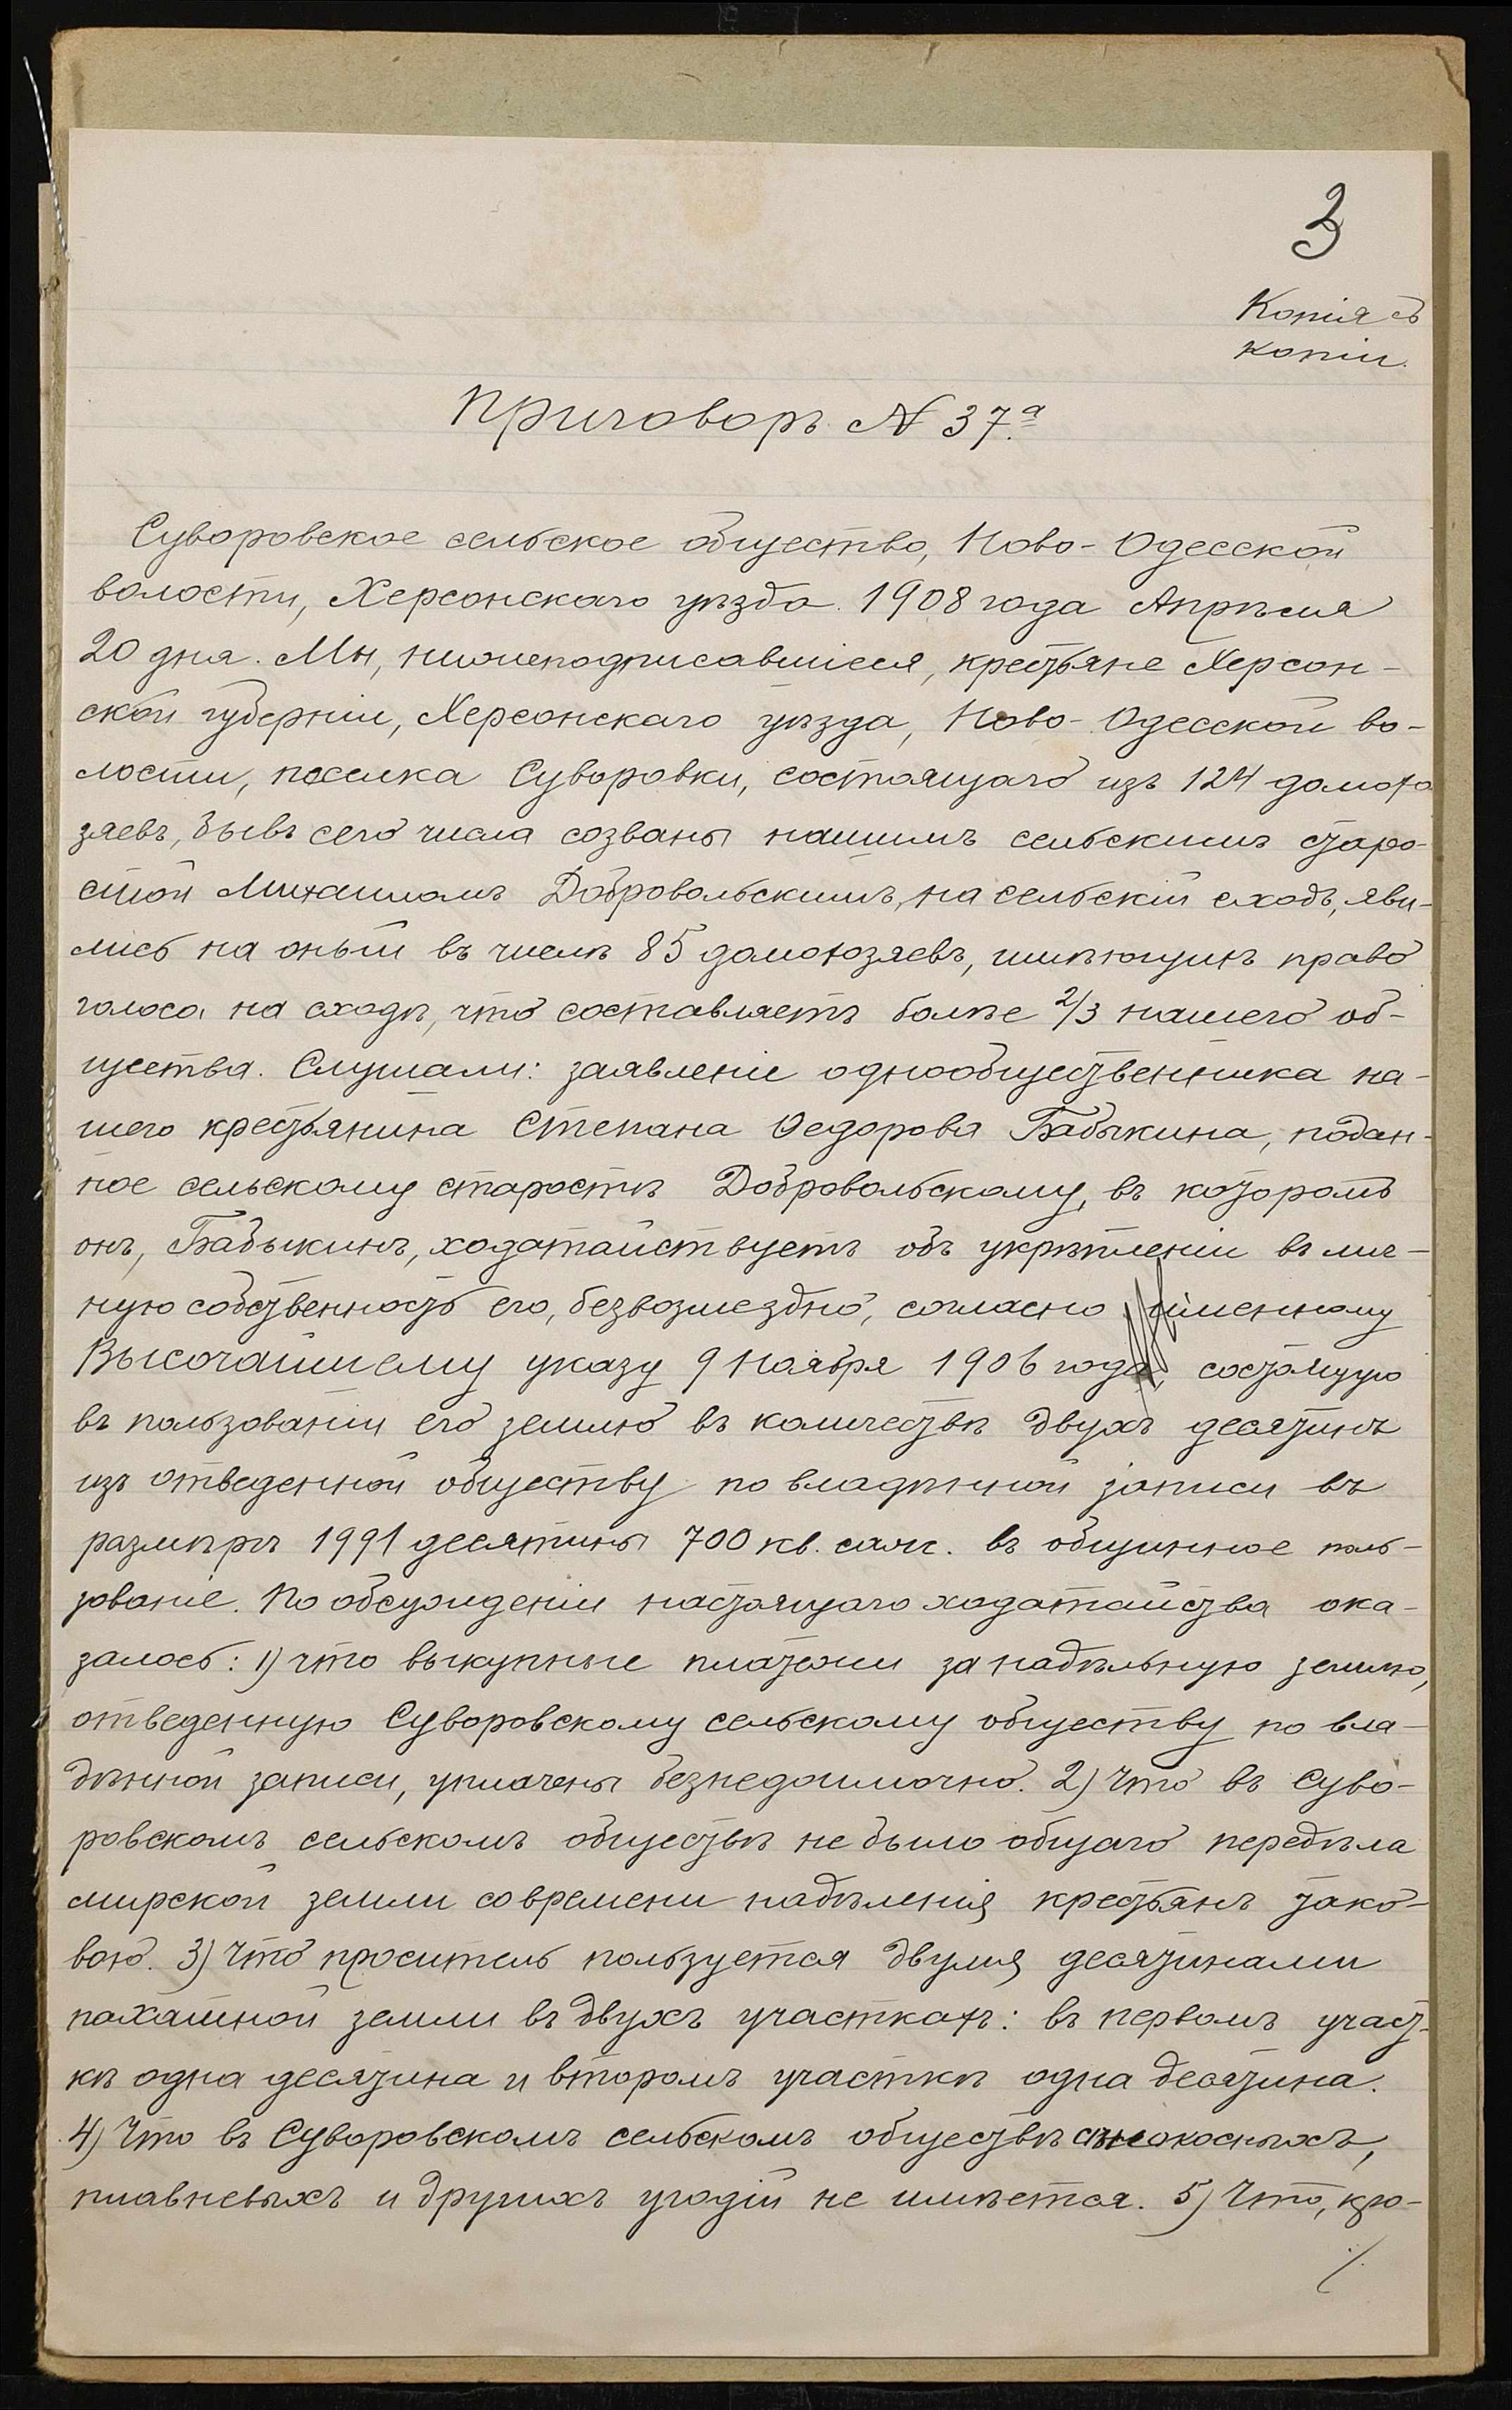 3
Копія съ
копіи.
Приговоръ № 37.а
Суворовское сельское общество, Ново-Одесской
волости, Херсонскаго уѣзда. 1908 года Апрѣля
20 дня. Мы, нижеподписавшіеся, крестьяне Херсон-
ской губерніи, Херсонскаго уѣзда, Ново-Одесской во-
лости, поселка Суворовки, состоящаго изъ 124 домохо
зяевъ, бывъ сего числа созваны нашимъ сельскимъ старо-
стой Михаиломъ Добровольскимъ, на сельскій сходъ, яви-
лись на оный въ числѣ 85 домохозяевъ, имѣющихъ право
голоса на сходѣ, что составляетъ болѣе 2/3 нашего об-
щества. Слушали: заявленіе однообщественника на-
шего крестьянина Степана Ѳедорова Бабыкина, подан-
ное сельскому старостѣ Добровольскому, въ которомъ
онъ, Бабыкинъ, ходатайствуетъ объ укрѣпленіи въ лич-
ную собственность его, безвозмездно, согласно именному
Высочайшему указу 9 Ноября 1906 года, состоящую
въ пользованіи его землю въ количествѣ двухъ десятинъ
изъ отведенной обществу по владѣнной записи въ
размѣрѣ 1991 десятины 700 кв. саж. въ общинное поль-
зованіе. По обсужденіи настоящаго ходатайства ока-
залось: 1) что выкупные платежи за надѣльную землю,
отведенную Суворовскому сельскому обществу по вла-
дѣнной записи, уплачены безнедоимочно. 2) Что въ Суво-
ровскомъ сельскомъ обществѣ не было общаго передѣла
мирской земли со времени надѣленія крестьянъ тако-
вою. 3) Что проситель пользуется двумя десятинами
пахатной земли въ двухъ участкахъ: въ первомъ участ-
кѣ одна десятина и второмъ участкѣ одна десятина.
4) Что въ Суворовскомъ сельскомъ обществѣ сѣнокосныхъ,
плавневыхъ и другихъ угодій не имѣется. 5) Что, кро-
./.